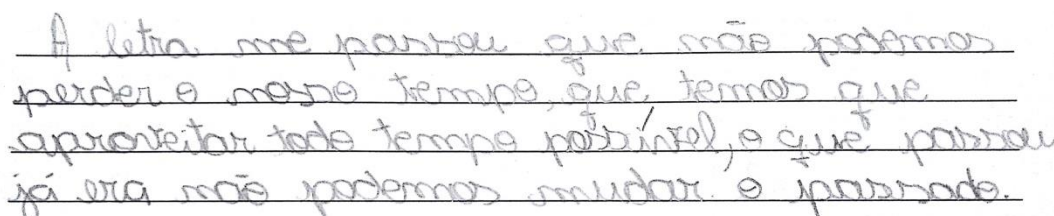 A letra me passou que não podemos
perder o nosso tempo, que temos que
aproveitar todo tempo possível, o que passou
já era não podemos mudar o passado.